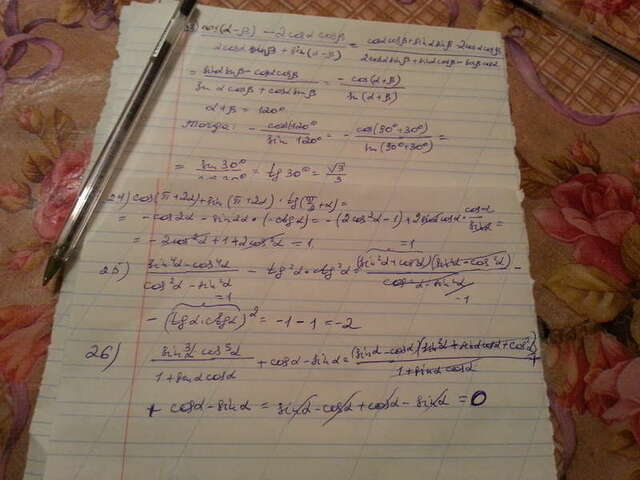 23) cos(α-β) - 2cosα cosβ / 2cosα sinβ + sin(α-β) = cosα cosβ + sinα sinβ - 2cosα cosβ / 2cosα sinβ + sinα cosβ - sinβ cosα
= sinα sinβ - cosα cosβ / sinα cosβ + cosα sinβ = -cos(α+β) / sin(α+β)
α+β = 120°
Тогда: - cos120° / sin 120° = - cos(90°+30°) / sin(90°+30°) =
= sin 30° / = tg 30° = √3 / 3
24) cos(π+2α) + sin(π+2α) · tg(π/2 + α) =
= -cos2α - sin2α · (-ctgα) = -(2cos²α-1) + 2sinα cosα · cosα / sinα =
= -2cos²α + 1 + 2cos²α = 1
25) sin⁴α - cos⁴α / cos²α - sin²α - tg²α · ctg²α = (sin²α + cos²α)(sin²α - cos²α) / cos²α - sin²α -
=1
=1
-1
- (tgα · ctgα)² = -1 - 1 = -2
26) sin³α cos³α / 1 + sinα cosα + cosα - sinα = (sinα - cosα)(sin²α + sinα cosα + cos²α) / 1 + sinα cosα +
+ cosα - sinα = sinα - cosα + cosα - sinα = 0